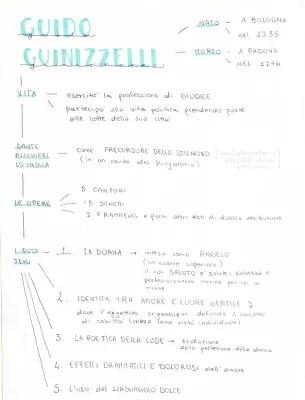 GUIDO
GUINIZZELLI
NATO - A BOLOGNA
nel 1235
MORTO - A PADOVA
NEL 1276
VITA
esercitò la professione di GIUDICE
partecipò alla vita politica prendendo parte
alle lotte della sua città
DANTE
ALIGHIERI
LO INDICA
come PRECURSORE DELLO STILNOVO
(in un canto del Purgatorio)
LE OPERE
5 CANZONI
15 SONETTI
2 FRAMMENTI e pochi altri testi di dubbia attribuzione
I SUOI
TEMI
1. LA DONNA → intesa come ANGELO
(un essere superiore)
il cui SALUTO è salute: salvezza e
perfezionamento morale per chi lo
riceve
2. IDENTITÀ TRA AMORE E CUORE GENTILE
dove l'aggettivo «gentile» definisce il concetto
di nobiltà (intesa come virtù individuale)
3. LA POETICA DELLA LODE → esaltazione
della perfezione della donna
4. EFFETTI DRAMMATICI E DOLOROSI dell'amore
5. L'uso del LINGUAGGIO DOLCE